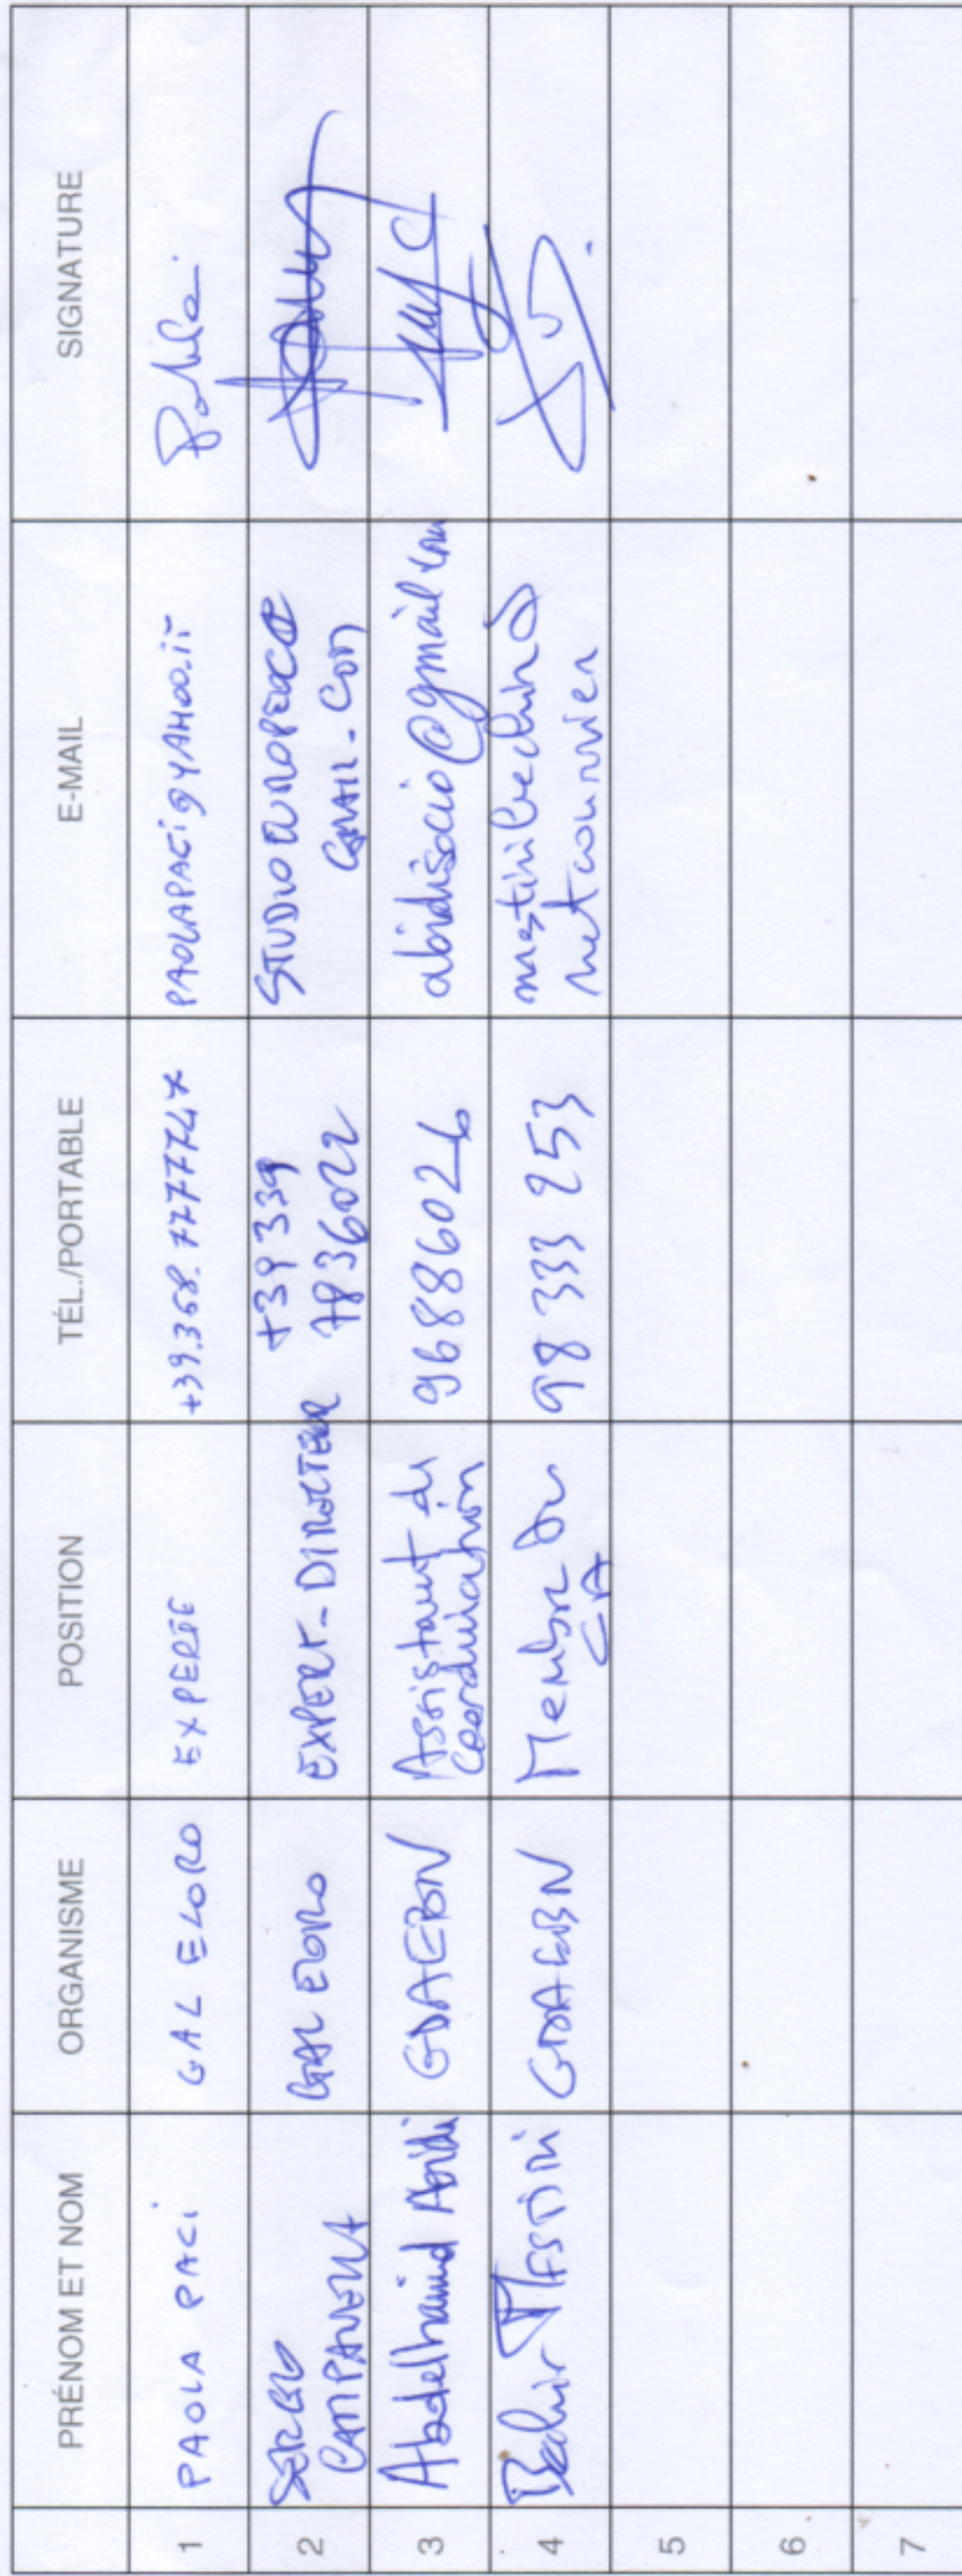 PRÉNOM ET NOM ORGANISME POSITION TÉL./PORTABLE E-MAIL SIGNATURE
1 PAOLA PACI GAL ELORO EXPERTE +39.368.7777747 PAOLAPACI@YAHOO.IT Paola
2 SERGIO CAMPANELLA GAL ELORO EXPERT-DIRECTEUR +39 339 7836022 GMAIL.COM
3 Abdelhamid Abidi GDAEBN Assistant de Coordination 96886026 abidiscio@gmail.com
4 Bechir MESTIRI GDAEBN Membre du CA 98 333 253
5
6
7